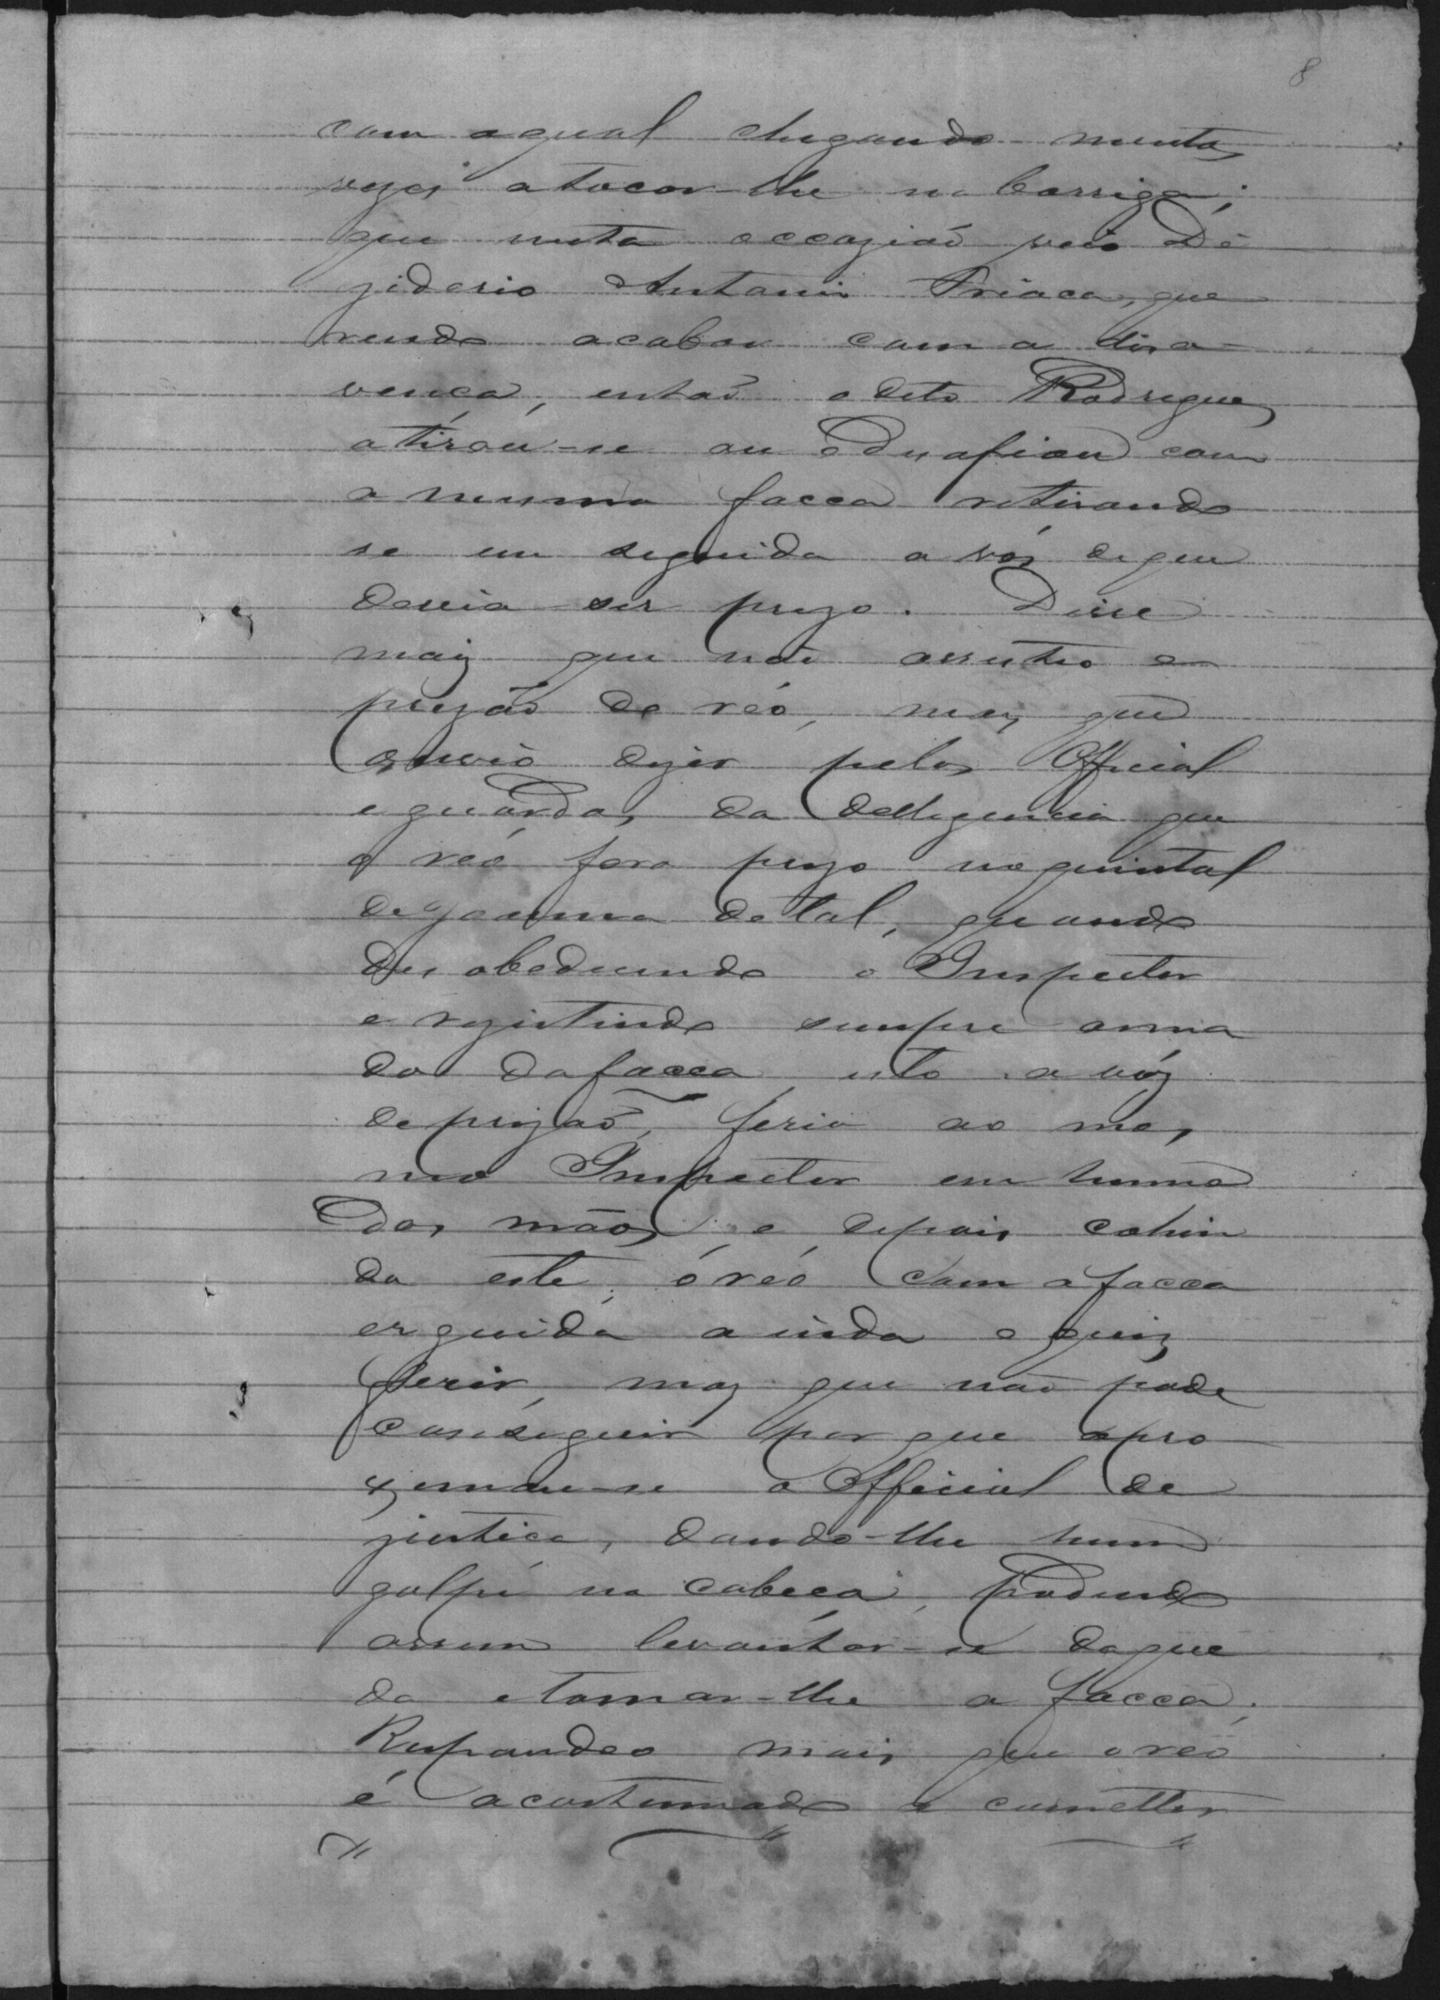 8
com aqual chegando muitas
vezes a tocar-lhe na barriga;
que nesta occazião veio De
ziderio Antonio Friaca, que
rendo acabar com a disa
vença, então o dito Rodrigues
atirou-se ou o desafiou com
a mesma facca retirando
se em seguida a vóz de que
devia ser prezo. Disse
mais que não assistio a
prizão do réo, mas que
ouvio dizer pelos Official
e guardas da delligencia que
o réo fora prezo no quintal
de Joanna de tal, quando
desobedecendo o Inspector
e rezistindo sempre arma
do da facca, isto a vóz
de prizão, ferio ao mes
mo Inspector em huma
das mãos, e depois cahin
do este, ó réo com a facca
erguida ainda o quiz
ferir, mas que não póde
conseguir por que apro
ximou-se o Official de
justica, dando-lhe hum
golpe na cabeca, podendo
assim levantar-se da que
da e tomar-lhe a facca.
Respondeo mais que o réo
é acostumado a cometter